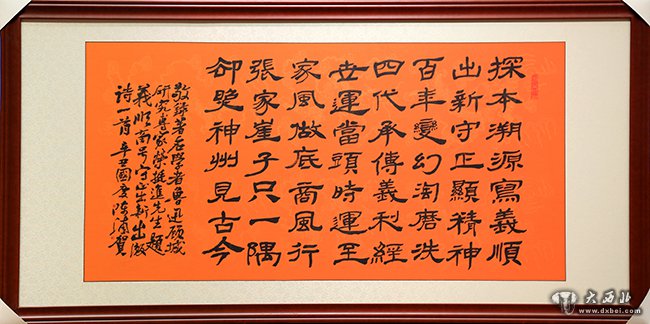 探本溯源寫義順
出新守正顯精神
百年變幻淘磨洗
四代承傳義利經
世運當頭時運至
家風做底商風行
張家崖子只一隅
卻神州見古今
敬錄著名學者魯迅顧城
研究專家榮挺進先生題
義順商号守正出新出
詩一首 辛丑國慶 陳賀
大西北
www.dxbei.com